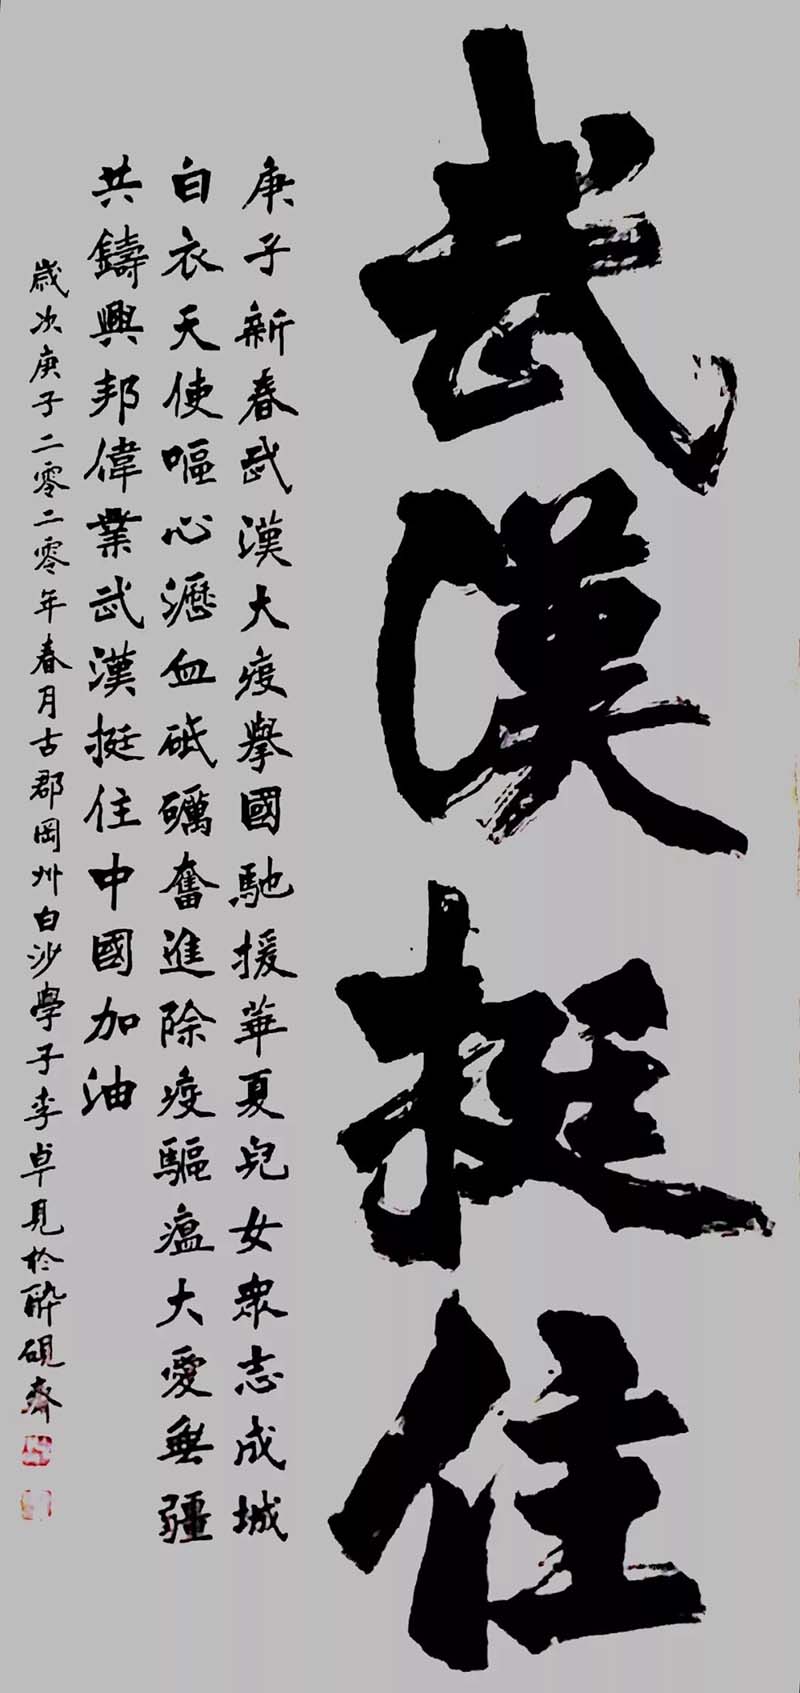 武漢挺住
庚子新春武漢大疫舉國馳援華夏兒女眾志成城
白衣天使嘔心瀝血砥礪奮進除疫驅瘟大愛無疆
共鑄興邦偉業武漢挺住中國加油
歲次庚子二零二零年春月古郡岡州白沙學子李卓見於醉硯齋